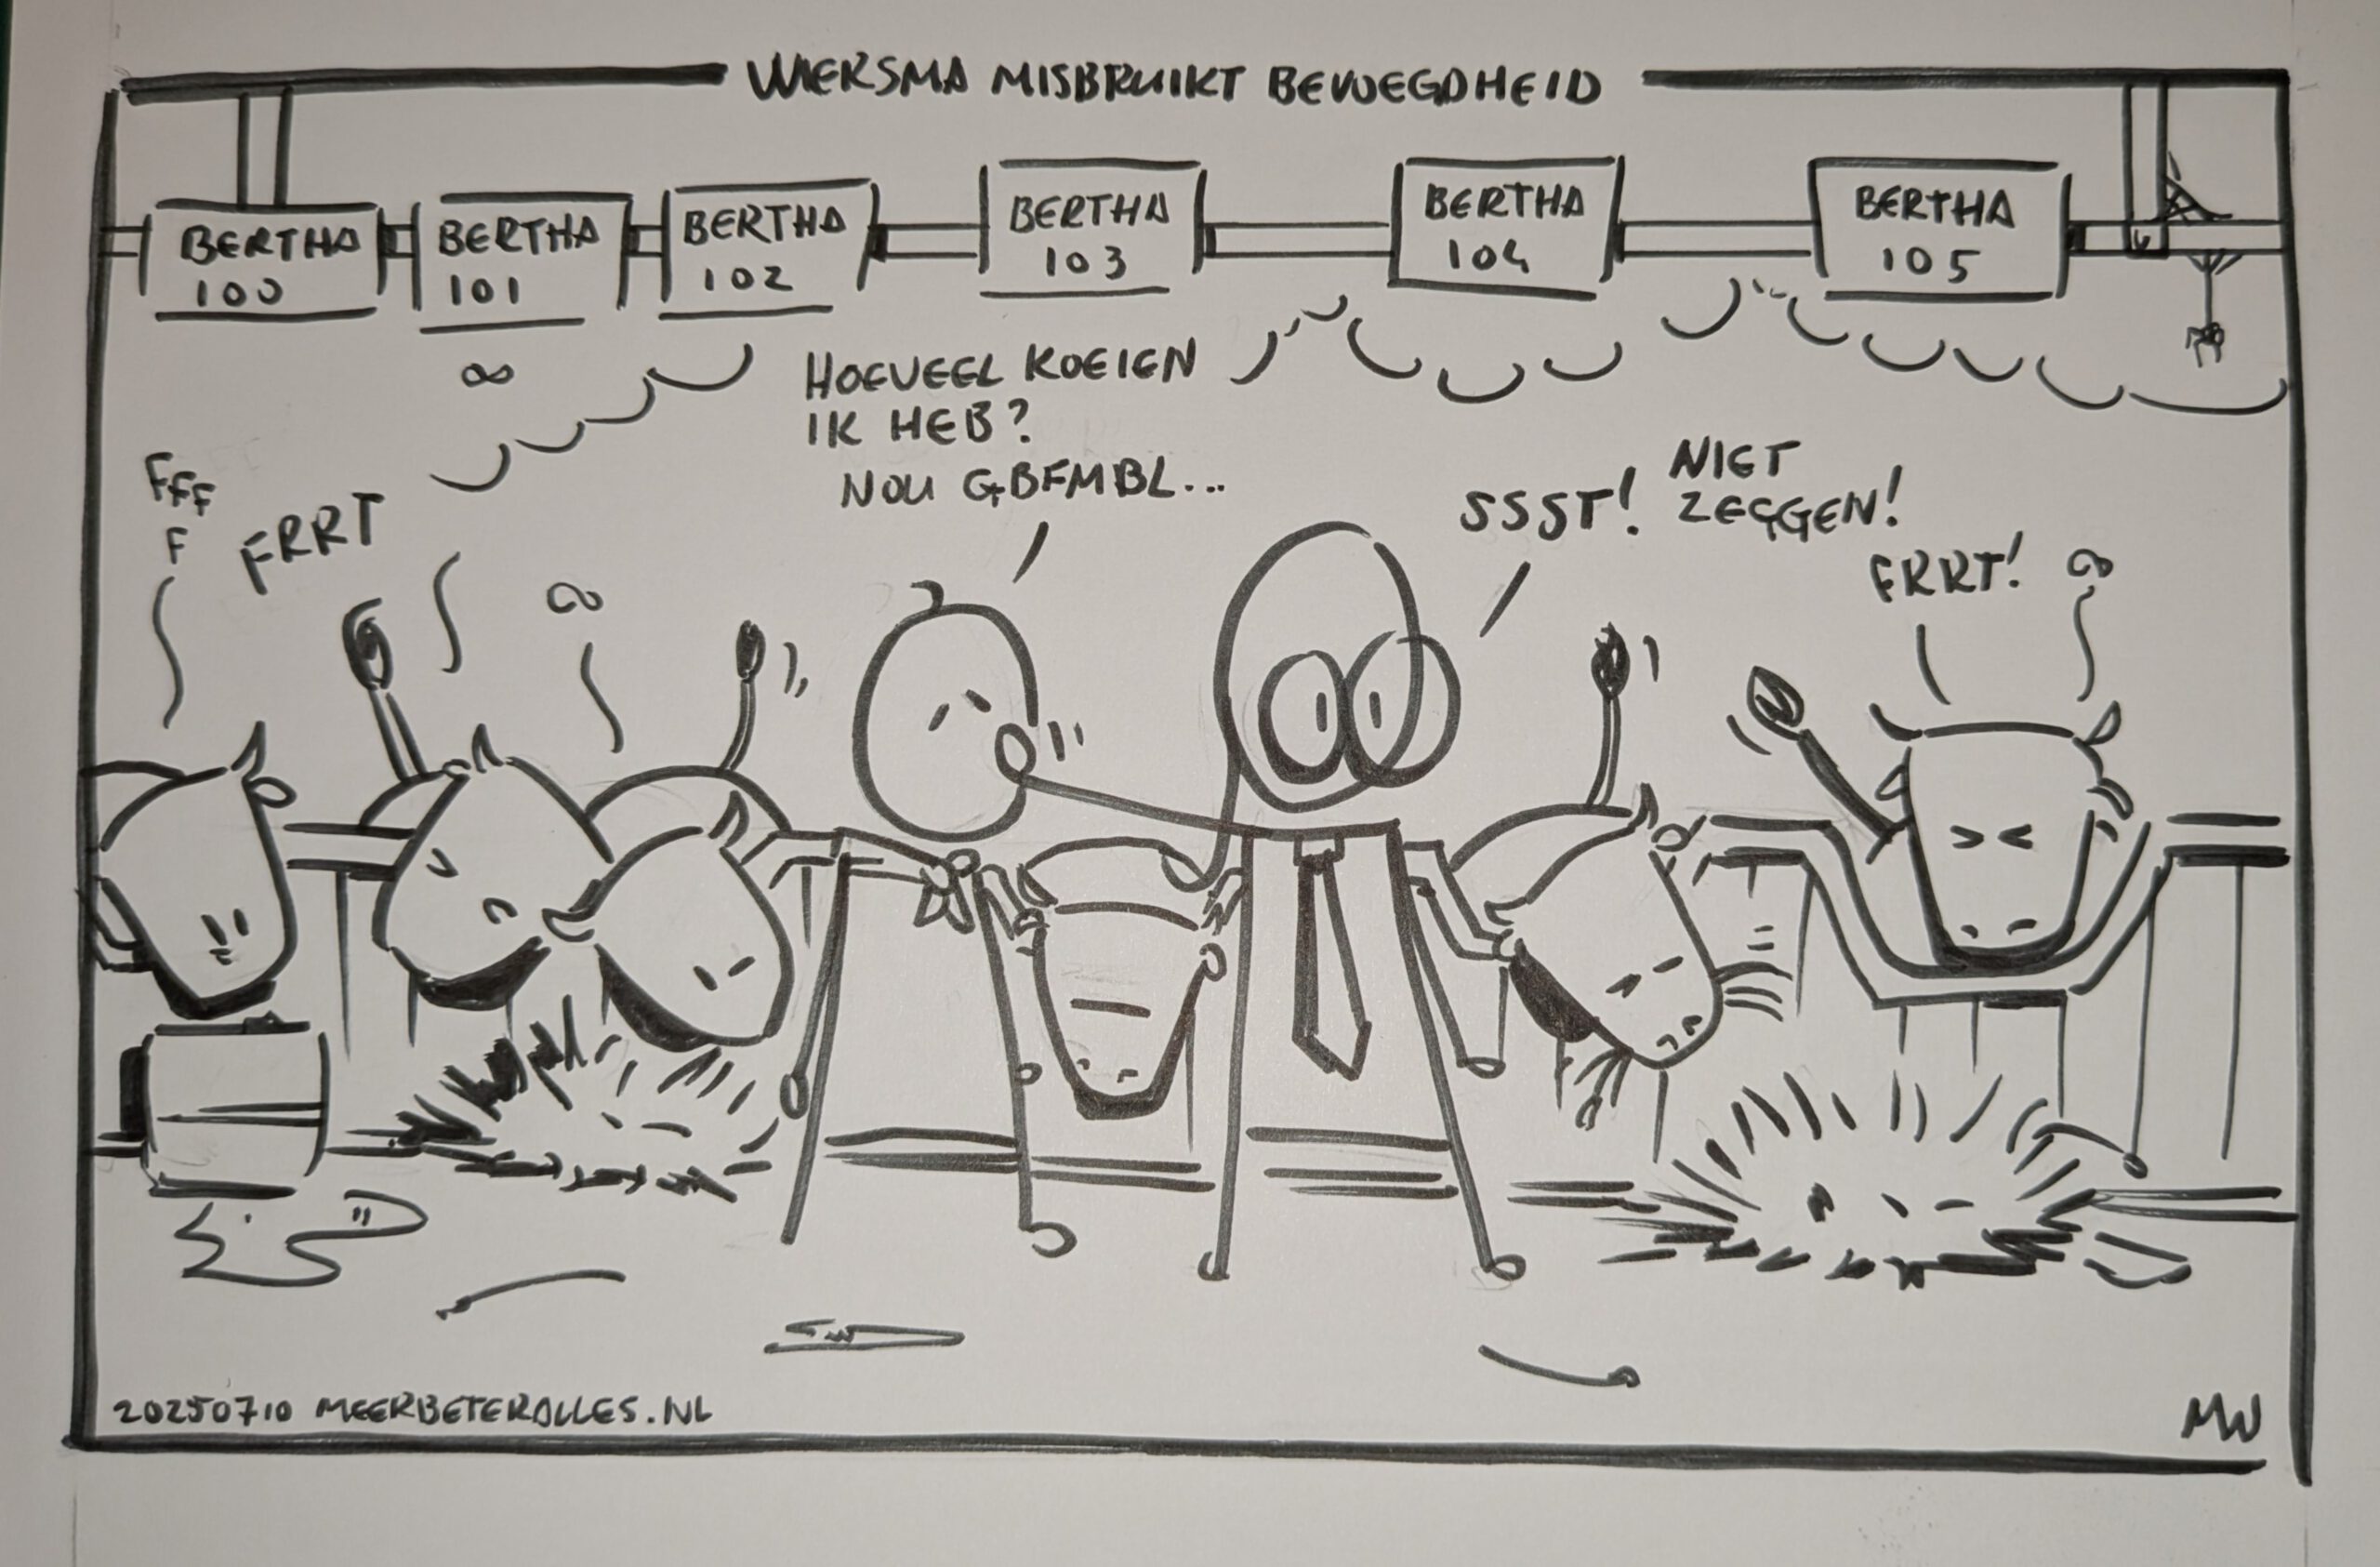 WIERSMA MISBRUIKT BEVOEGDHEID
BERTHA
100
BERTHA
101
BERTHA
102
BERTHA
103
BERTHA
104
BERTHA
105
HOEVEEL KOEIEN
IK HEB?
NOU GBFMBL...
SSST! NIET
ZEGGEN!
FFF
F
FRRT
FRRT!
20250710 MEERBETERALLES.NL
MW